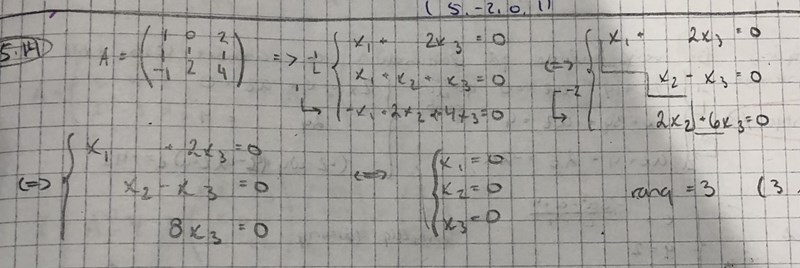 (5, -2, 0, 1)
5.14)
A = ( 1 0 2
1 1 1
-1 2 4 ) =>
{ x₁ + 2x₃ = 0
x₁ + x₂ + x₃ = 0
-x₁ + 2x₂ + 4x₃ = 0
<=> { x₁ + 2x₃ = 0
x₂ - x₃ = 0
2x₂ + 6x₃ = 0
-2
<=> { x₁ + 2x₃ = 0
x₂ - x₃ = 0
8x₃ = 0
<=> { x₁ = 0
x₂ = 0
x₃ = 0
rang = 3 (3